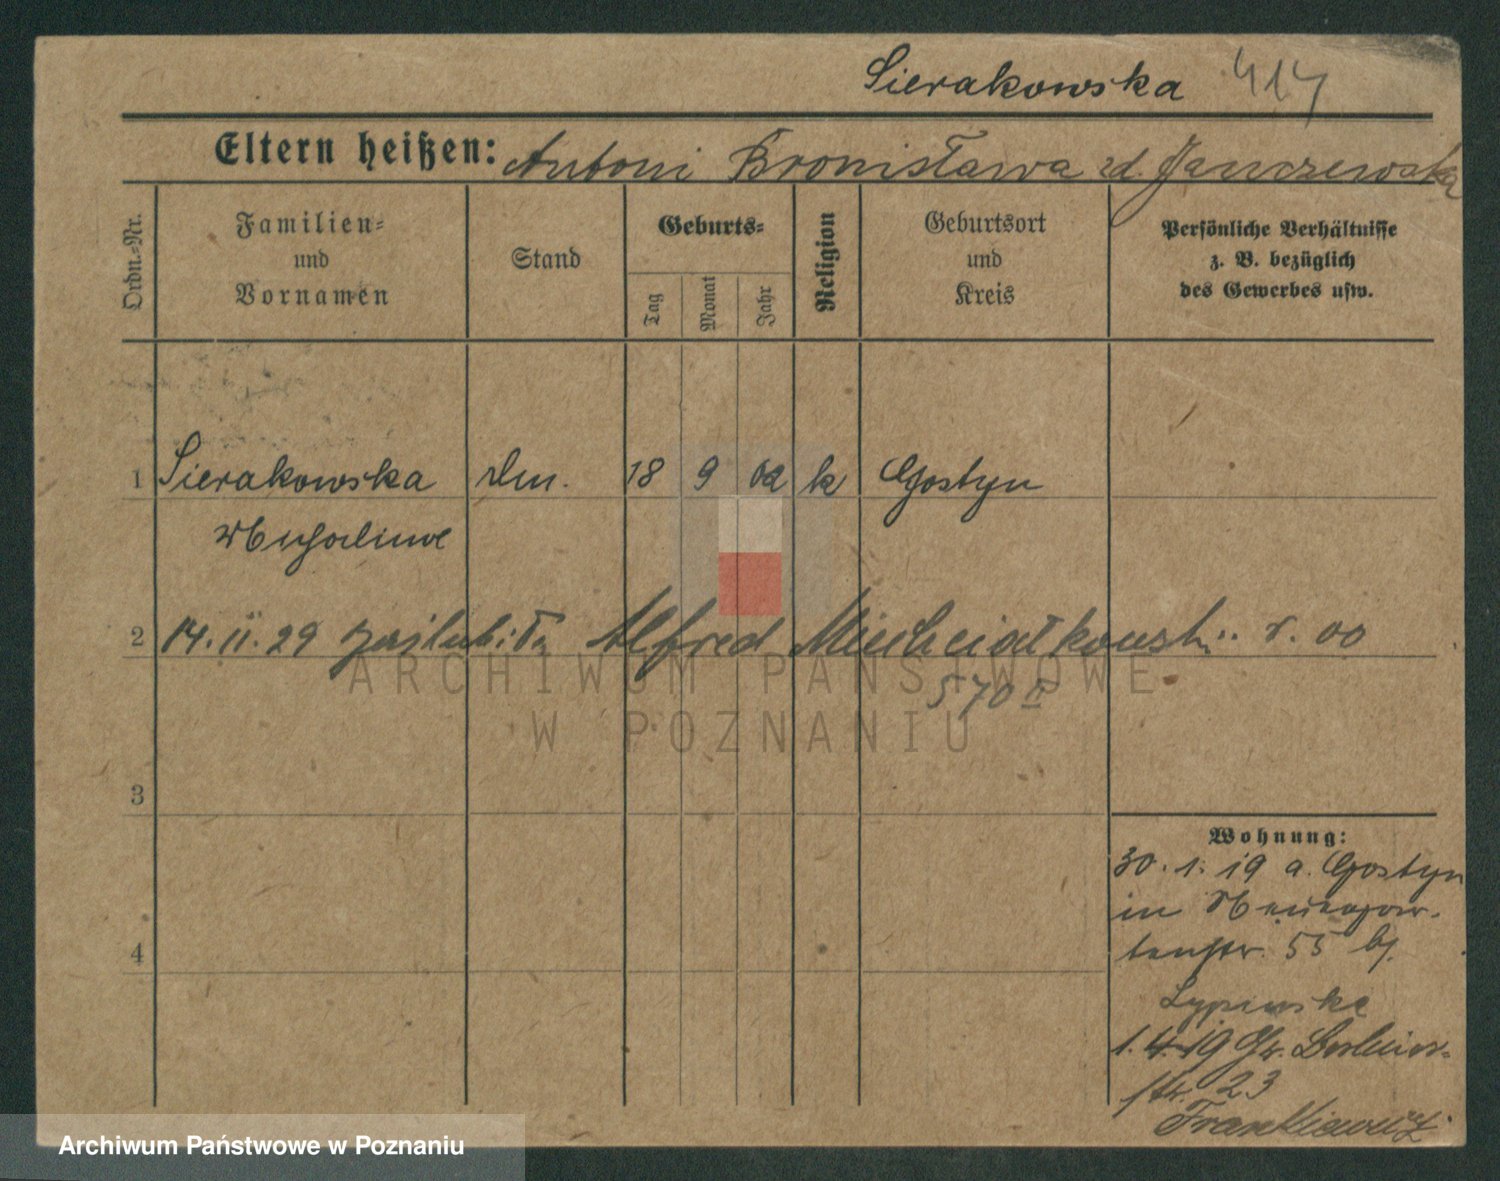 Sierakowska 414
Eltern heißen: Antoni Bronisława zd. Janczewska
Ordn.=Nr.
Familien=
und
Vornamen
Stand
Geburts=
Tag
Monat
Jahr
Religion
Geburtsort
und
Kreis
Persönliche Verhältnisse
z. B. bezüglich
des Gewerbes usw.
1 Sierakowska 18 9 02 k Gostyn
2 14.II.29 Alfred r. 00
570
3
4
Wohnung:
30.1.19 a. Gostyn
in
55 bj.
1.4.19 Gr. Berliner-
str. 23
Frankiewicz
ARCHIWUM PAŃSTWOWE
W POZNANIU
Archiwum Państwowe w Poznaniu